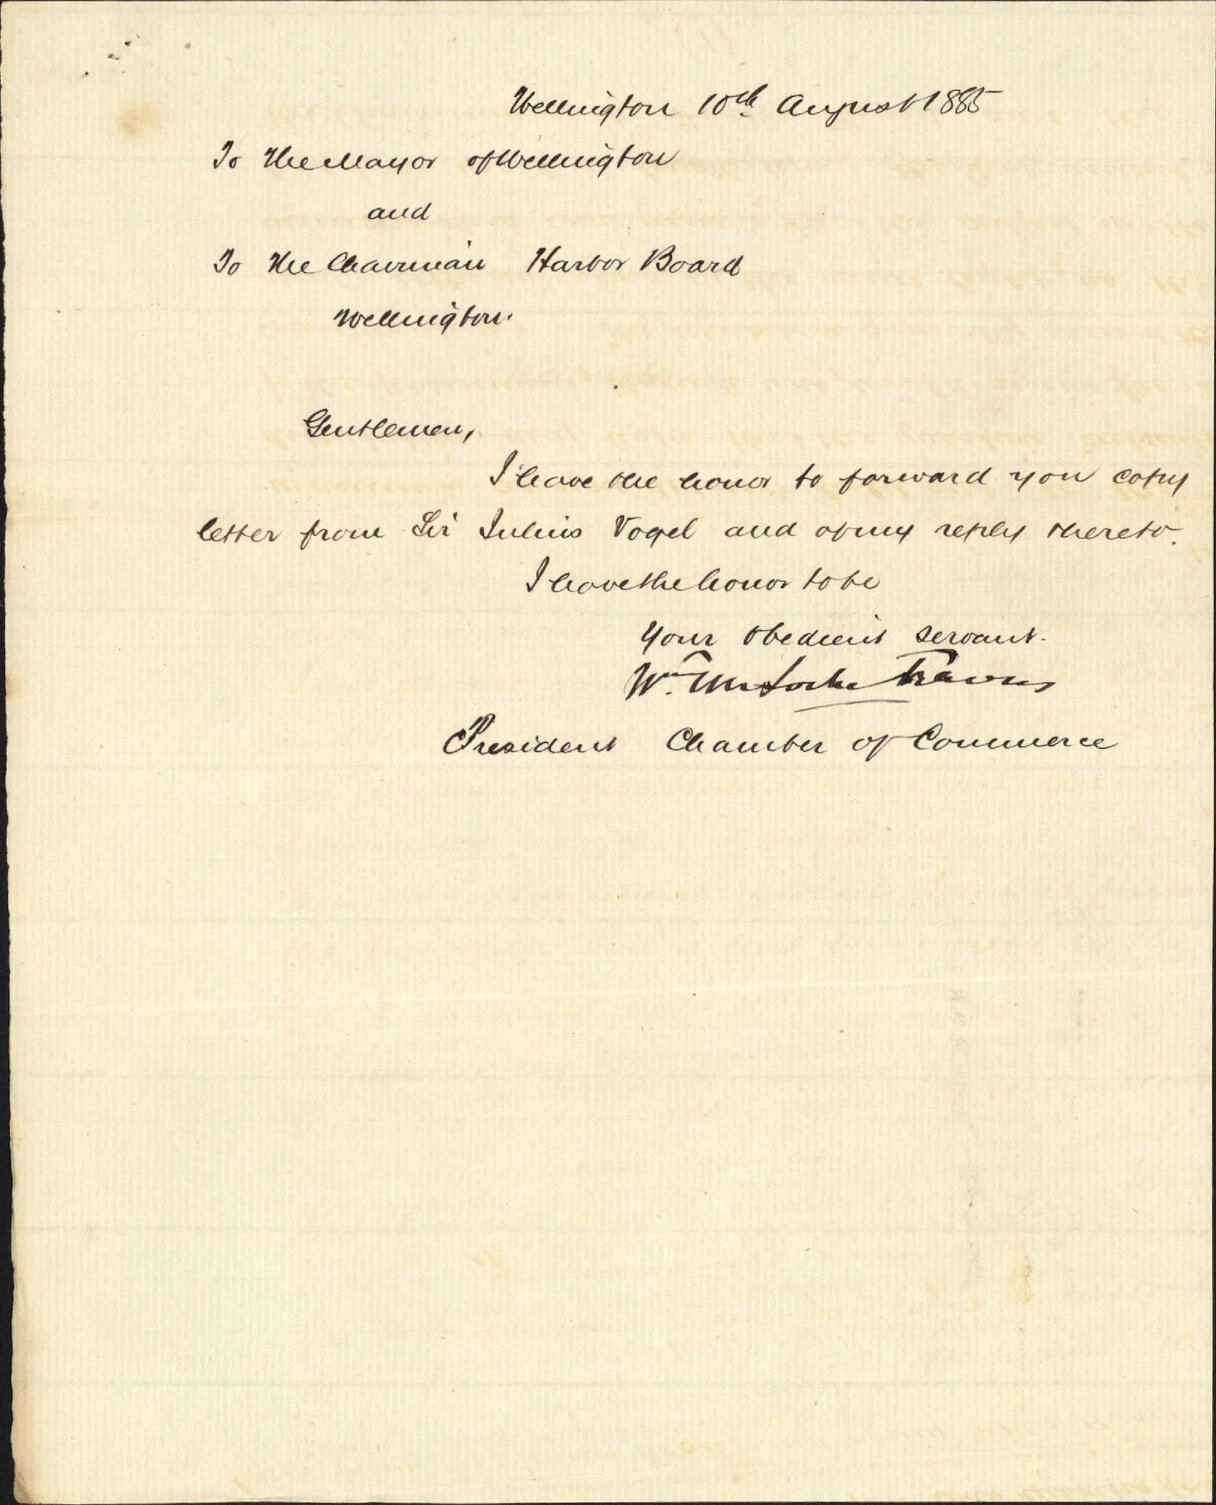 Wellington 10th August 1885
To The Mayor of Wellington
and
To The Chairman Harbor Board
Wellington.
Gentlemen,
I have the honor to forward you copy
letter from Sir Julius Vogel and of my reply thereto.
I have the honor to be
Your obedient servant.
Wm. Locke Travers
President Chamber of Commerce